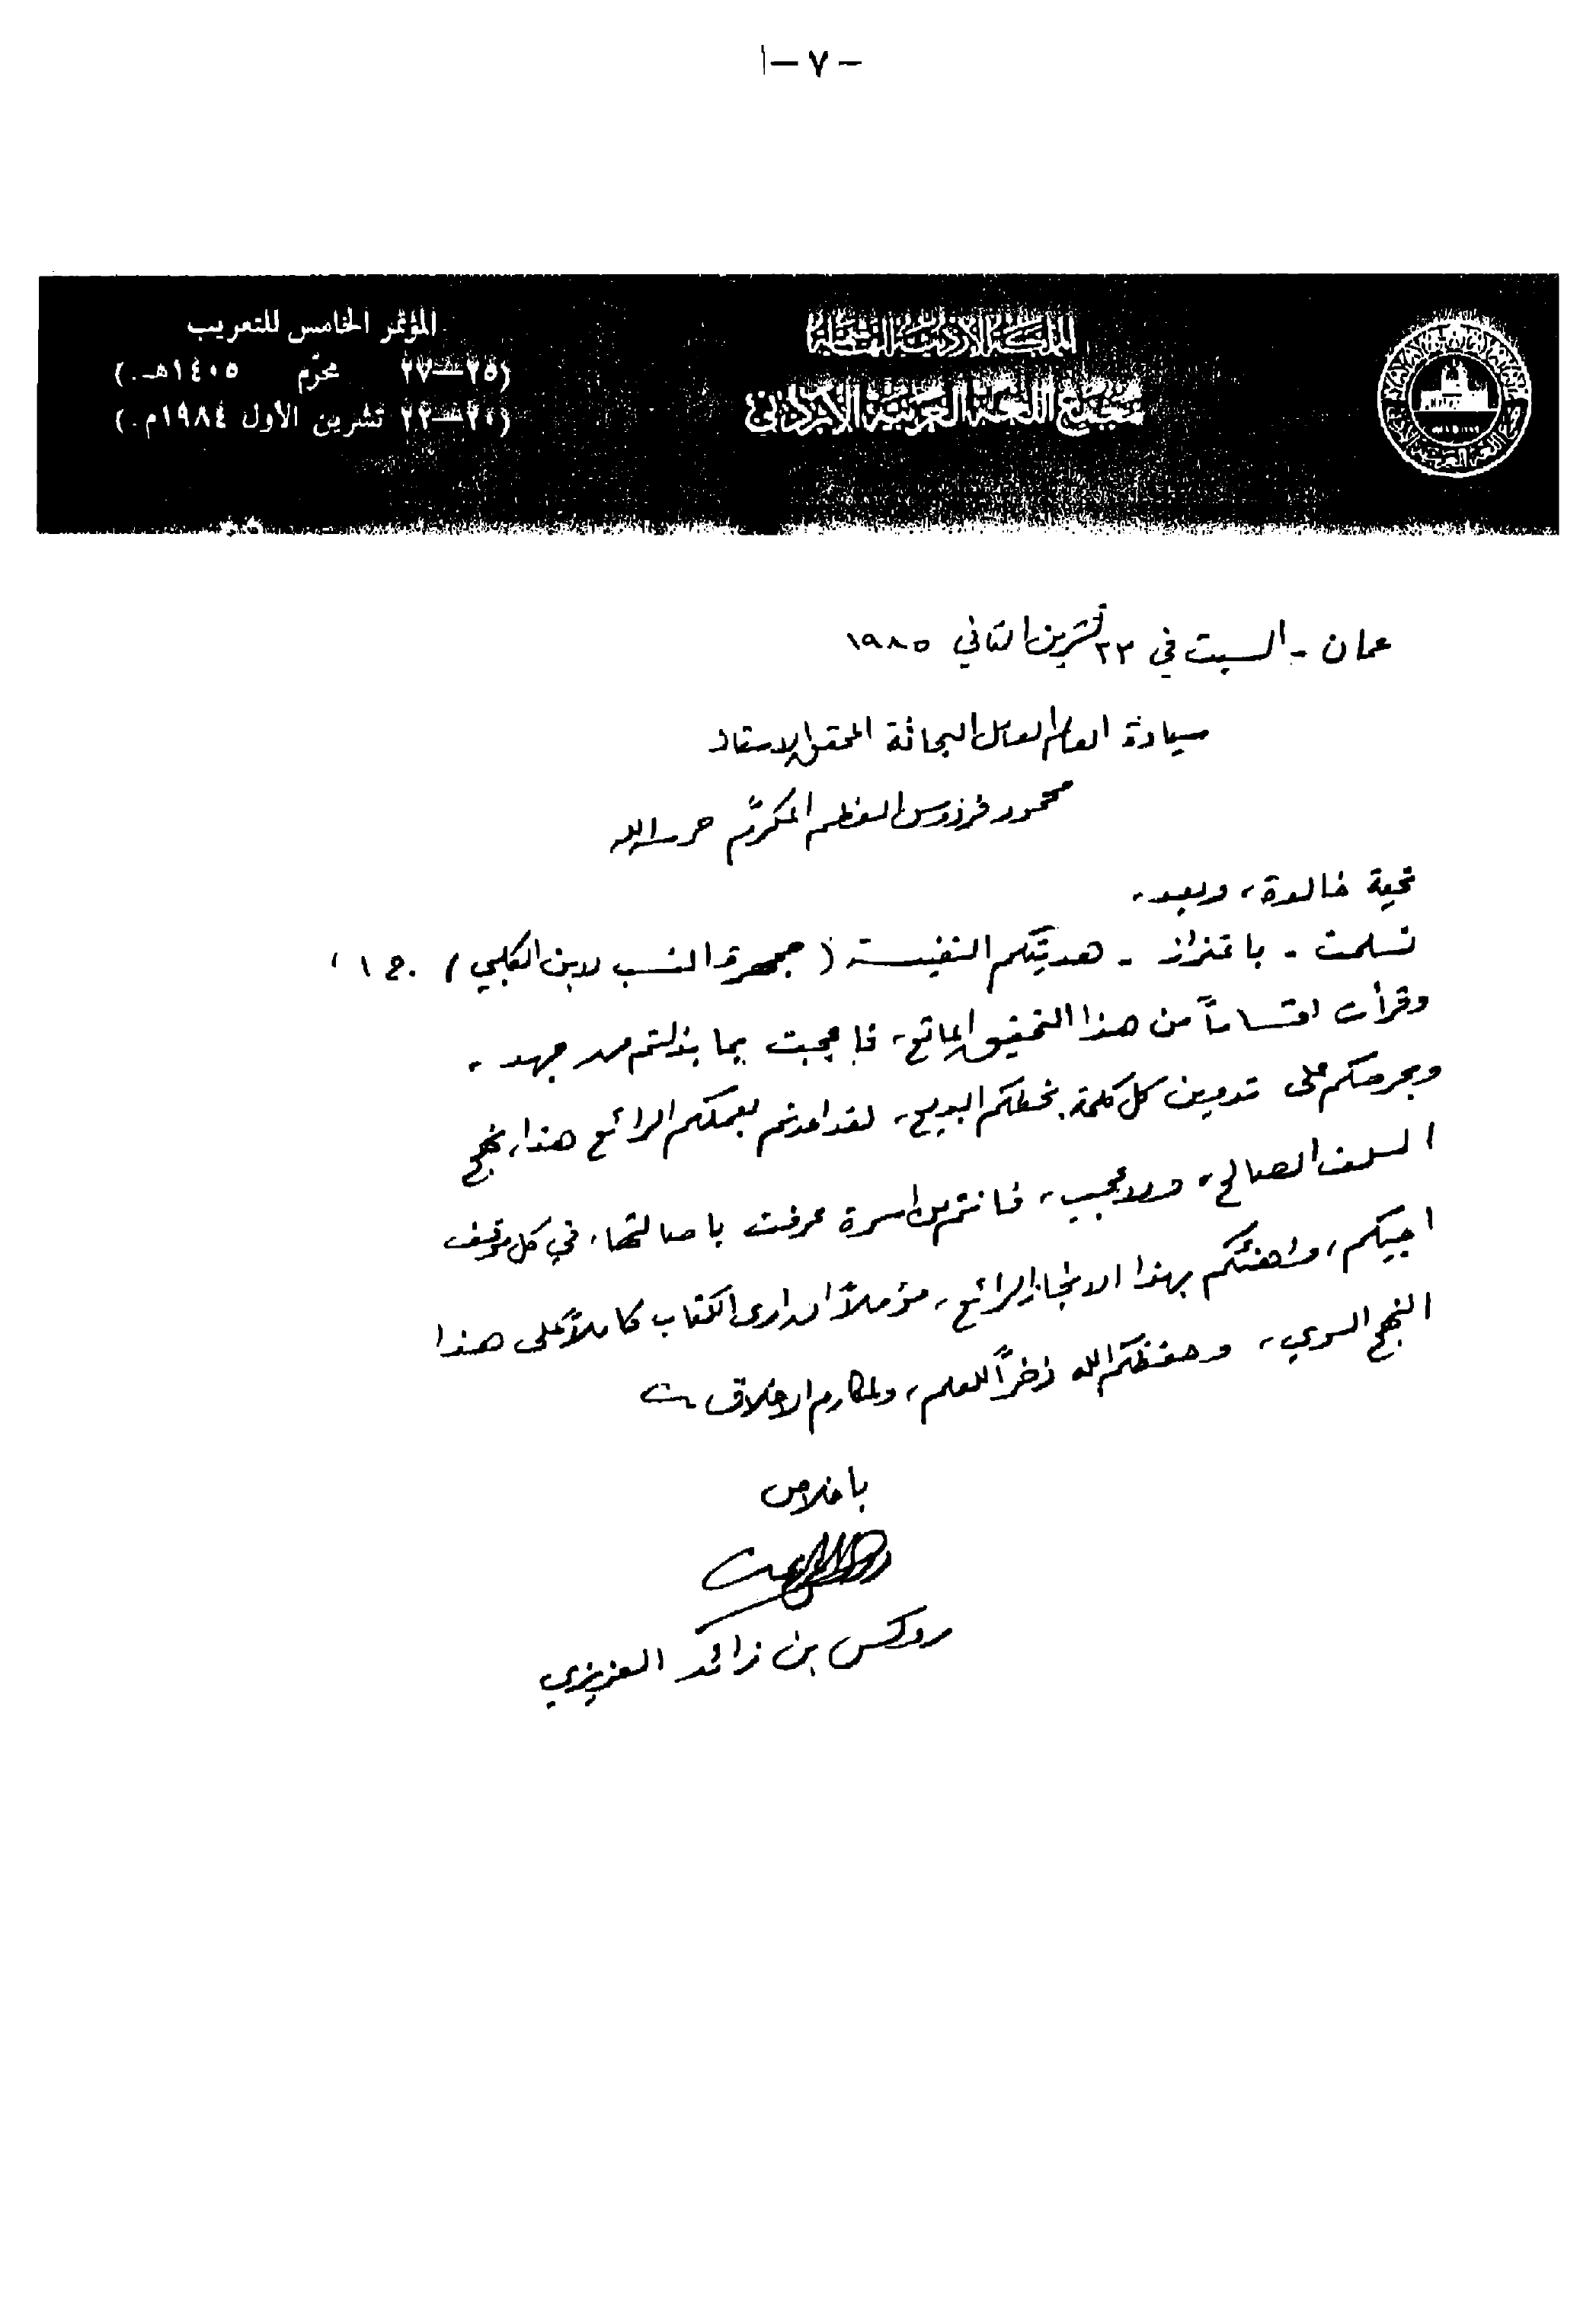 - ٧ - ا
المملكة الأردنية الهاشمية
مجمع اللغة العربية الأردني
المؤتمر الخامس للتعريب
(٢٥—٢٧ محرّم ١٤٠٥هـ.)
(٢٠—٢٢ تشرين الأول ١٩٨٤م.)
عمان - السبت في ٢٣ تشرين الثاني ١٩٨٥
سيادة العالم العامل البحاثة المحقق الاستاذ
محمود فردوس العظم المكرّم حرسه الله
تحية خالدة، وبعد،
تسلمت - باعتزاز - هديتكم النفيسة (جمهرة النسب لابن الكلبي) ج ١،
وقرأت اقساماً من هذا التحقيق الماتع، فاعجبت بما بذلتم من جهد،
وبحرصكم على تدوين كل كلمة بخطكم البديع، لقد اعدتم بعملكم الرائع هذا، نهج
السلف الصالح، ولا عجب، فانتم من اسرة عرفت باصالتها، في كل موقف
احييكم، واهنئكم بهذا الانجاز الرائع، مؤملاً ان ارى الكتاب كاملاً على هذا
النهج السوي، وحفظكم الله ذخراً للعلم، ولمكارم الاخلاق
باخلاص
روكس بن زائد العزيزي